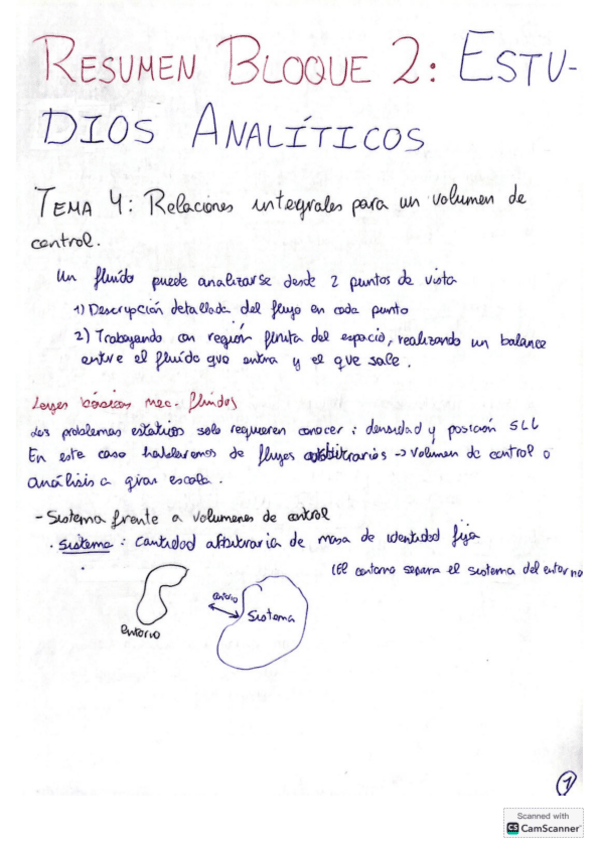 RESUMEN BLOQUE 2: ESTU-
DIOS ANALÍTICOS
TEMA 4: Relaciones integrales para un volumen de
control.
Un fluído puede analizarse desde 2 puntos de vista
1) Descripción detallada del flujo en cada punto
2) Trabajando con región finita del espacio, realizando un balance
entre el fluído que entra y el que sale.
Leyes básicas mec. fluidos
Los problemas estáticos solo requieren conocer: densidad y posición SLL
En este caso hablaremos de flujos arbitrarios -> Volumen de control o
análisis a gran escala.
- Sistema frente a volumenes de control
. Sistema: Cantidad arbitraria de masa de identidad fija
(El contorno separa el sistema del entorno
entorno
Sistema
entorno
1
Scanned with
CS CamScanner